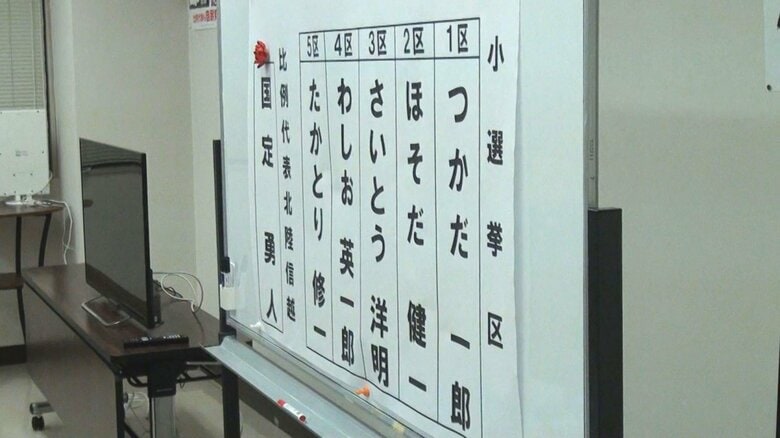 小選挙区
1区
つかだ 一郎
2区
ほそだ 健一
3区
さいとう 洋明
4区
わしお 英一郎
5区
たかとり 修一
比例代表北陸信越
国定 勇人